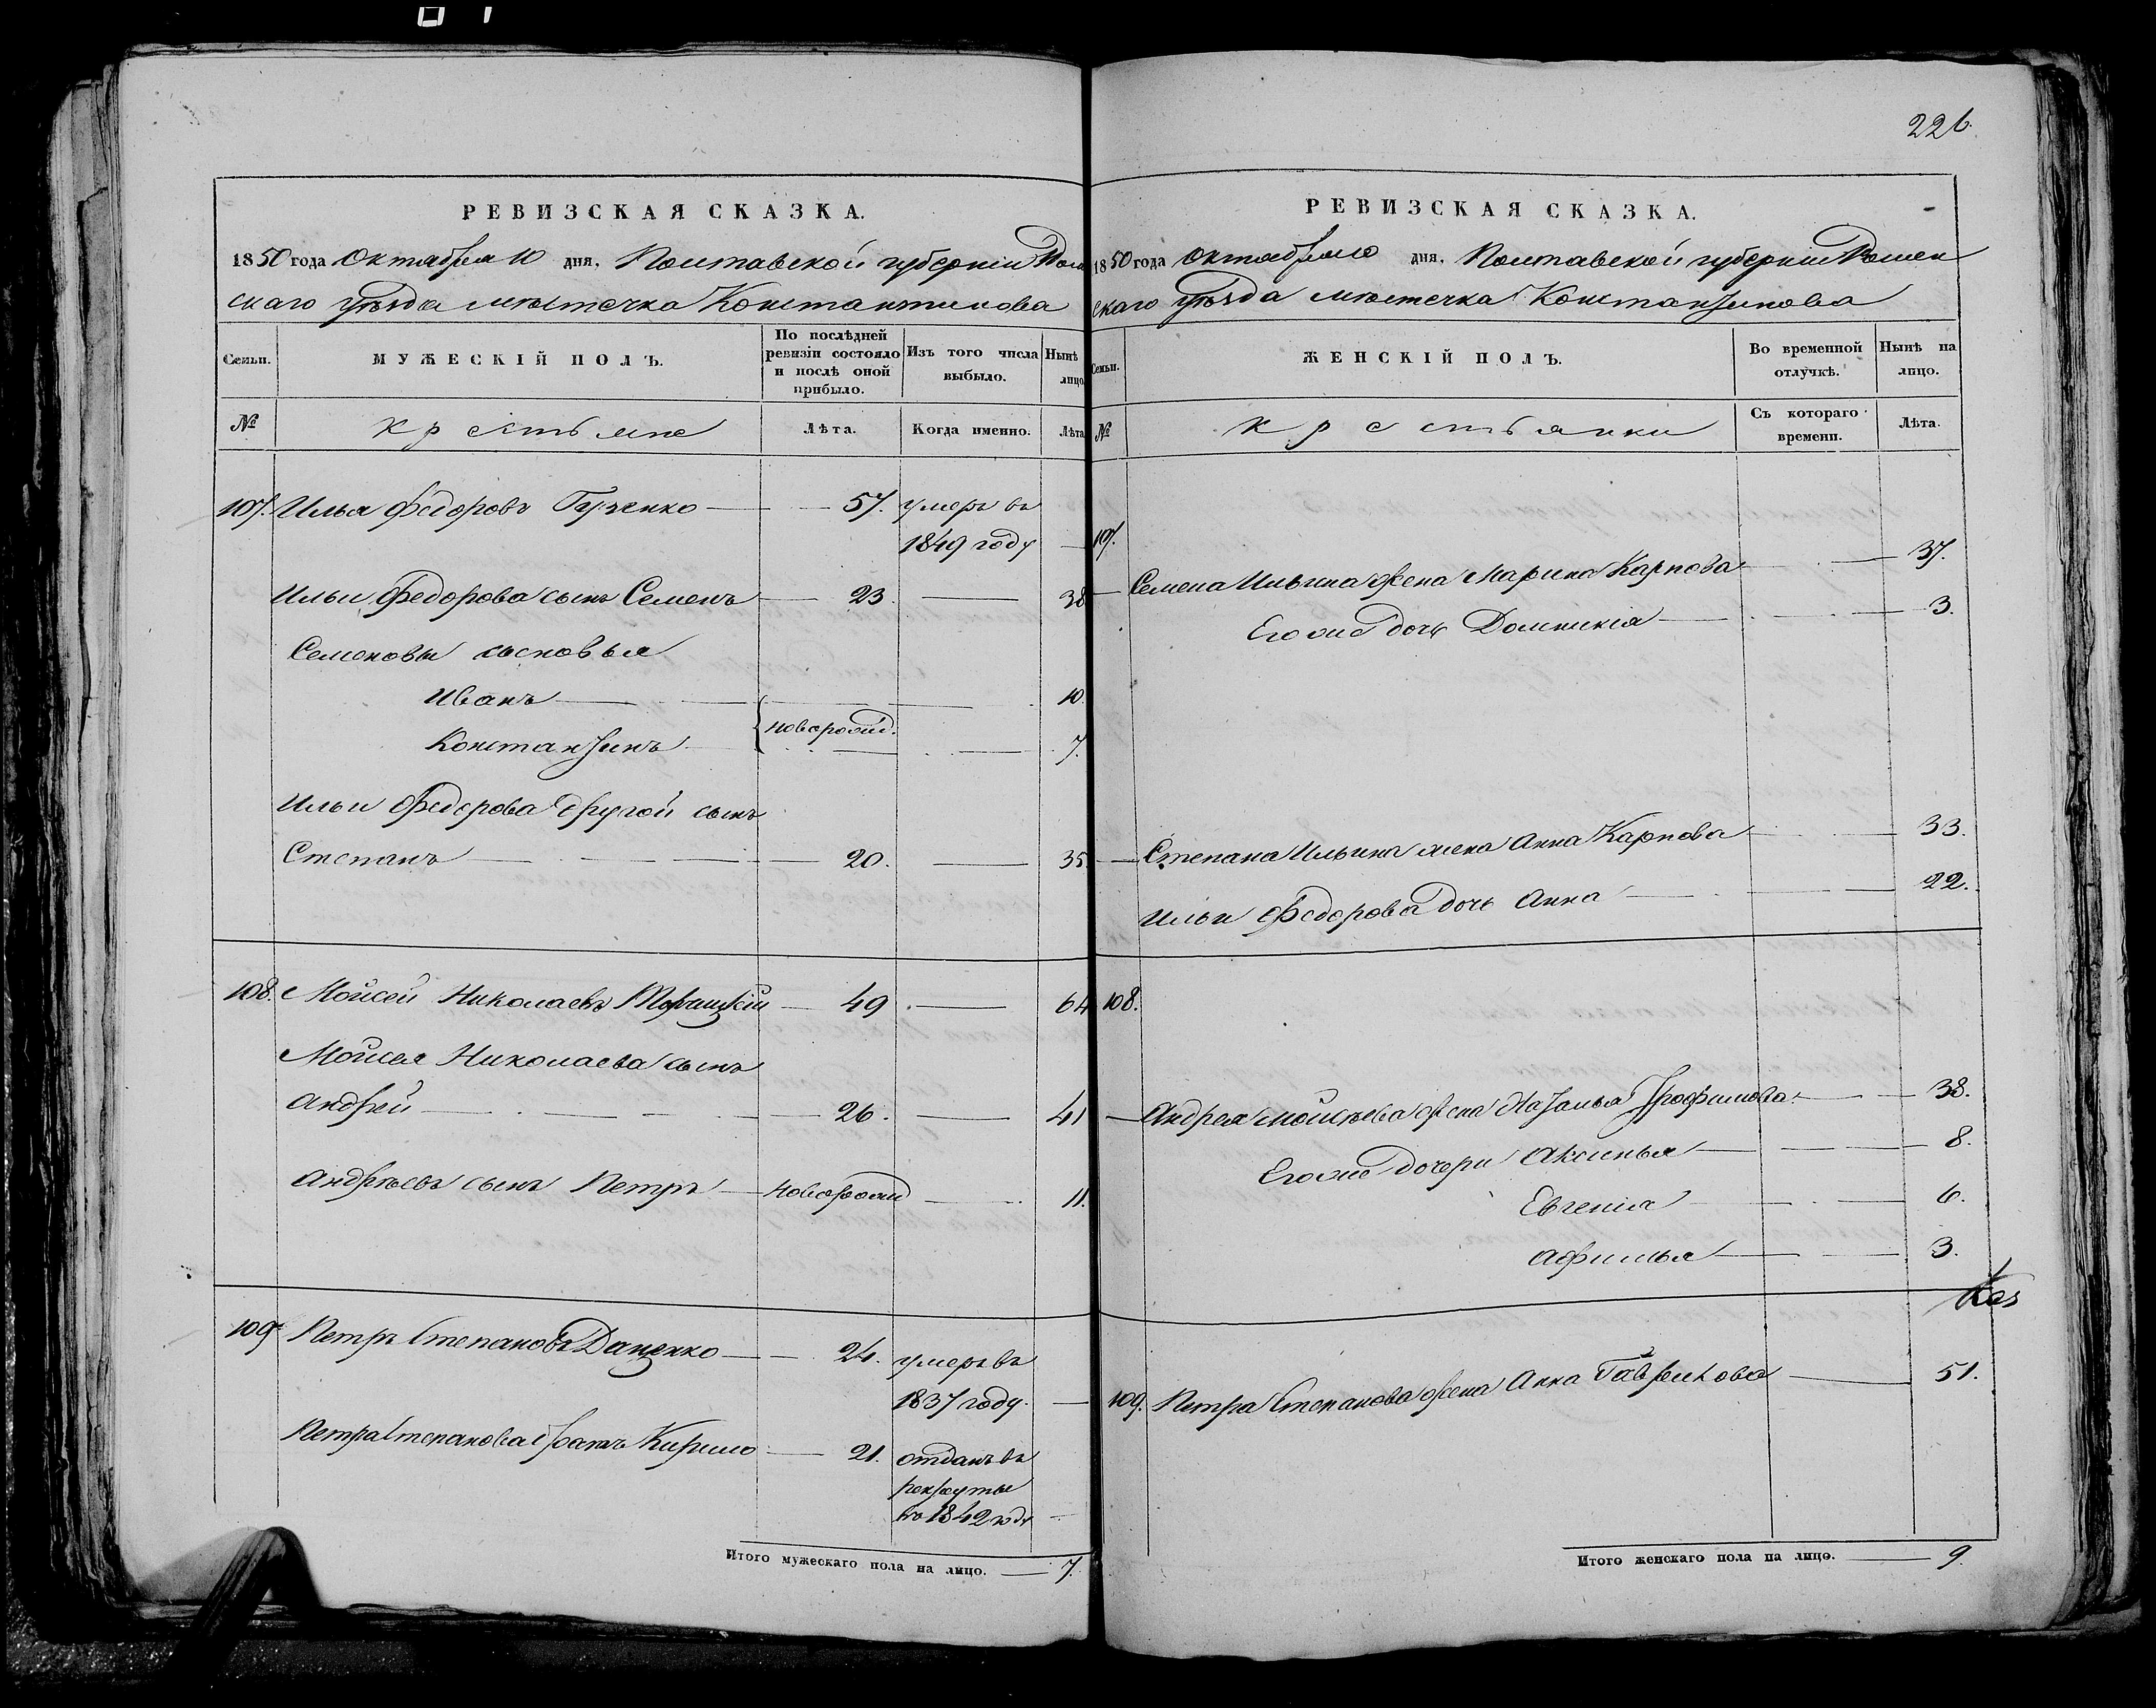 226.
РЕВИЗСКАЯ СКАЗКА.
1850 года Октября 10 дня, Полтавской губерніи Ромен
скаго уѣзда мѣстечка Константинова
Семьи.
МУЖЕСКІЙ ПОЛЪ.
По послѣдней ревизіи состояло и послѣ оной прибыло.
Изъ того числа выбыло.
Нынѣ лицо
№
Крестьяне
Лѣта.
Когда именно.
Лѣта
107. Илья Федоровъ — 57. умеръ въ
1849 году —
Ильи Федорова сынъ Семенъ — 23. — 38
Семеновы сыновья
Иванъ — 10.
новорожд.
Константинъ — 7.
Ильи Федорова другой сынъ
Степанъ — 20. — 35
108. Мойсей Николаевъ — 49 — 64
Мойсея Николаева сынъ
Андрей — 26. — 41
Андрѣевъ сынъ Петръ — новорожд — 11.
109. Петръ Степановъ Даценко — 24. умеръ въ
1837 году. —
Петра Степанова братъ Кирило — 21. отданъ въ
рекруты
въ 1842 году —
Итого мужескаго пола на лицо. — 7.
РЕВИЗСКАЯ СКАЗКА.
1850 года Октября 10 дня, Полтавской губерніи Ромен
скаго уѣзда мѣстечка Константинова
Семьи.
ЖЕНСКІЙ ПОЛЪ.
Во временной отлучкѣ.
Нынѣ на лицо.
№
Крестьянки
Съ котораго времени.
Лѣта.
107.
Семена Ильина жена Марина Карпова — 37.
Его же дочь Домникія — 3.
Степана Ильина жена Анна Карпова — 33.
Ильи Федорова дочь Анна — 22.
108.
Андрея Мойсѣева жена Наталья Трофимова — 38.
Его же дочери Аксинья — 8.
Евгенія — 6.
Афимья — 3.
109. Петра Степанова жена Анна Гаврилова — 51.
Итого женскаго пола на лицо. — 9.